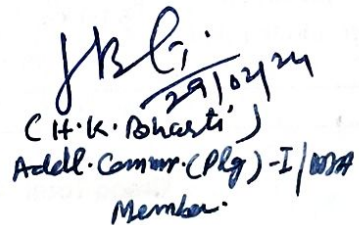 29/02/24
(H.K. Bharti)
Addl. Commr. (Plg)-I/
Member.